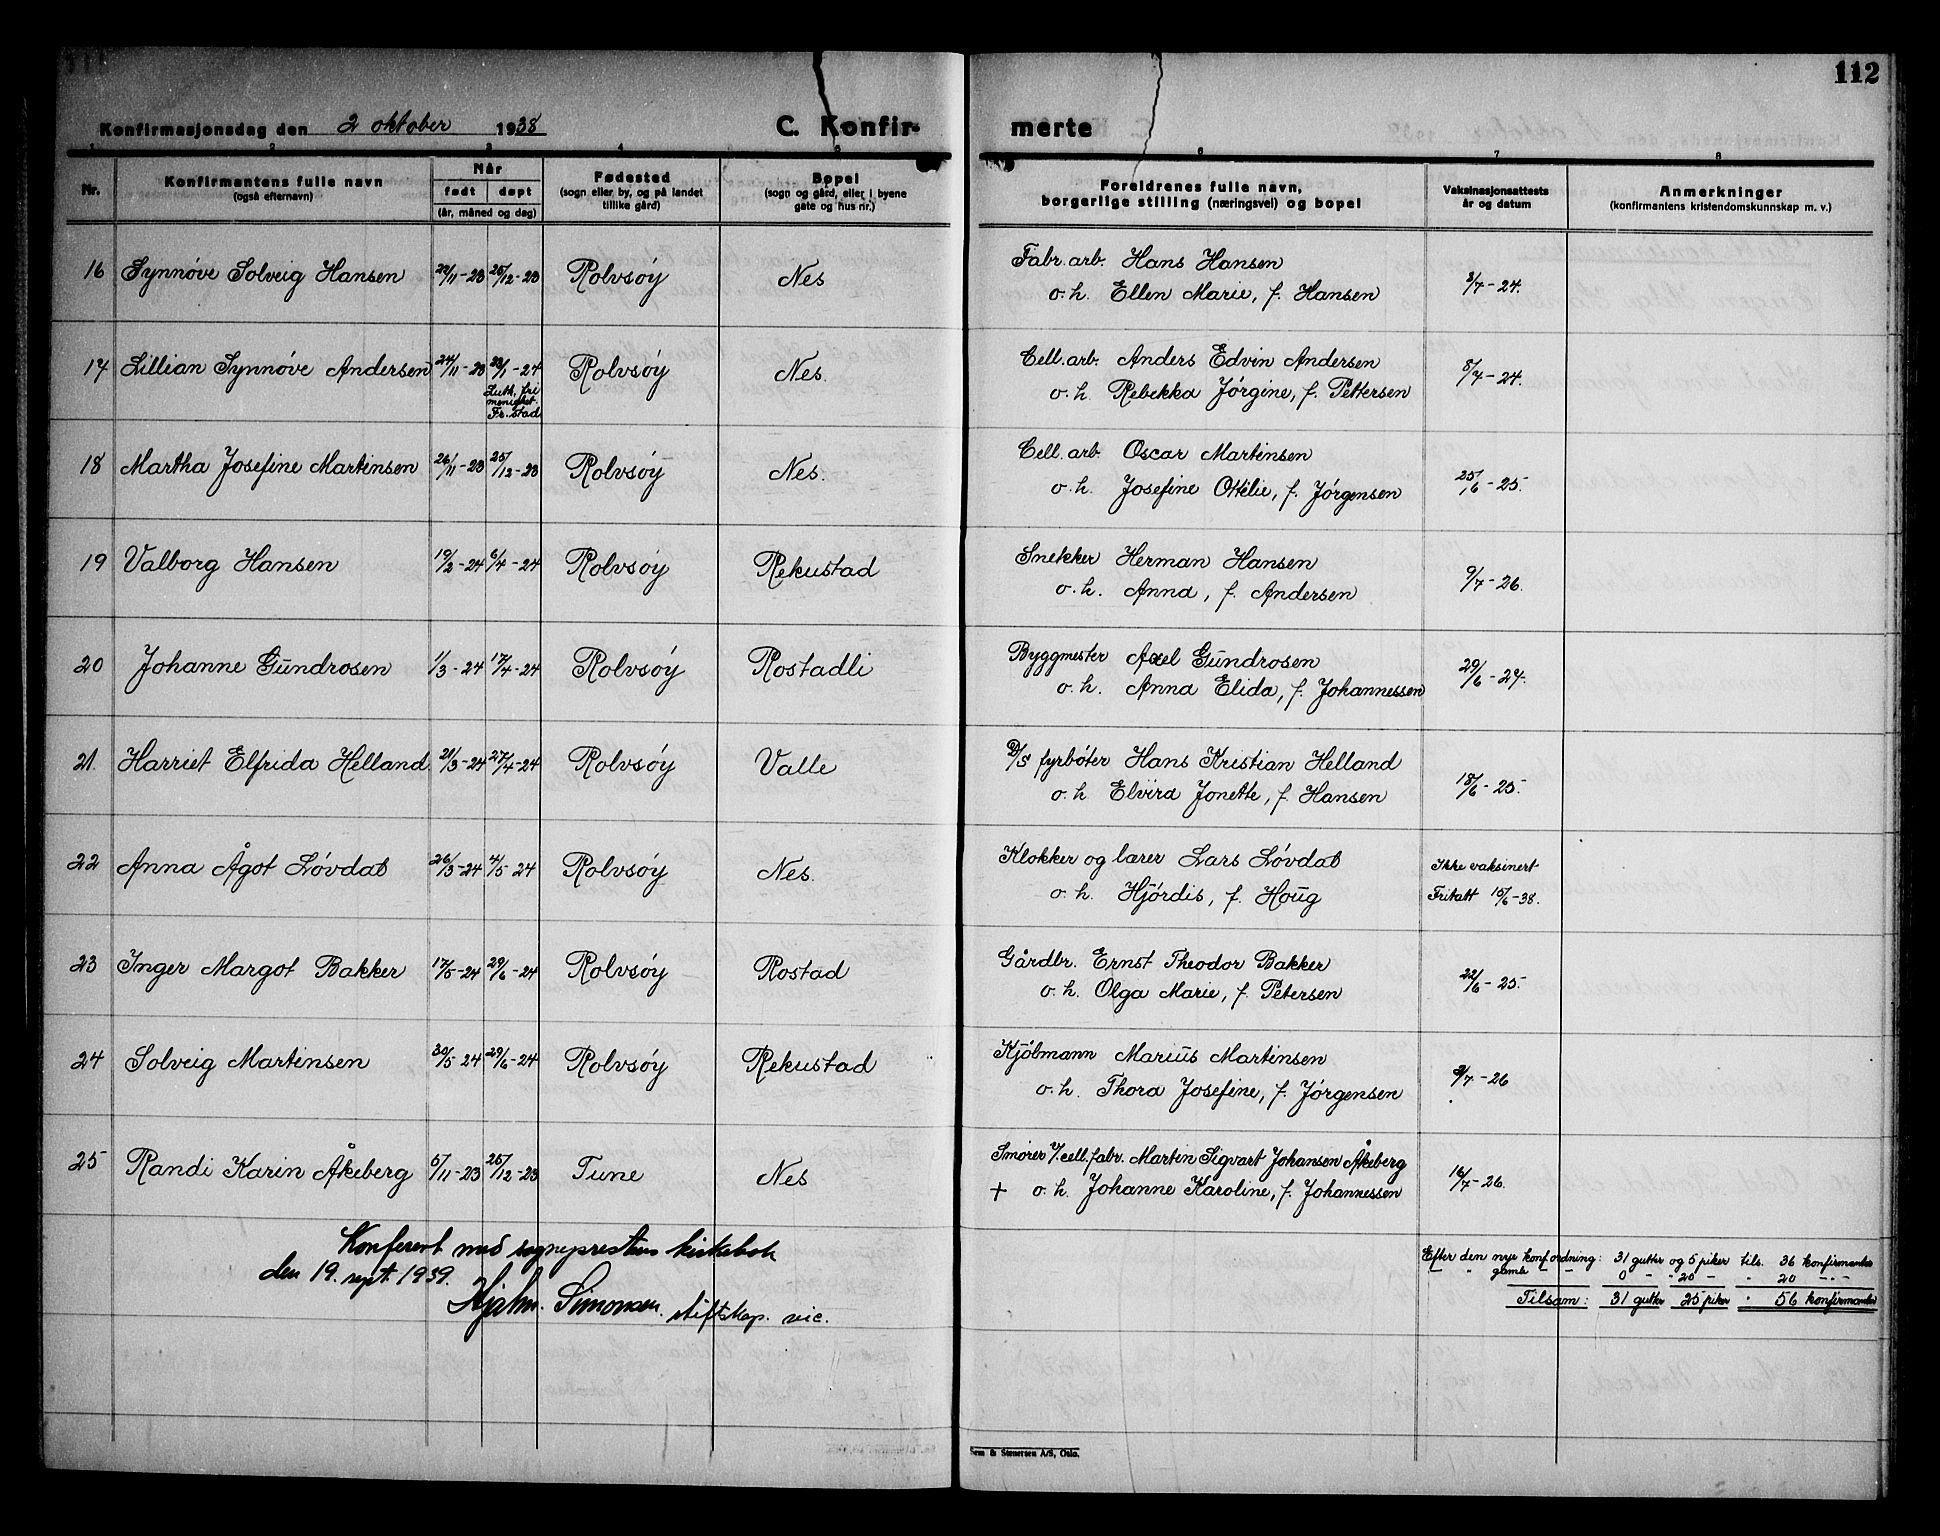 112
Konfirmasjonsdag den 2 oktober 1938 C. Konfir- merte
1 2 3 4 5 6 7 8
Nr. Konfirmantens fulle navn (også efternavn) Når født døpt (år, måned og dag) Fødested (sogn eller by, og på landet tillike gård) Bopel (sogn og gård, eller i byene gate og hus nr.) Foreldrenes fulle navn, borgerlige stilling (næringsvei) og bopel Vaksinasjonsattests år og datum Anmerkninger (konfirmantens kristendomskunnskap m. v.)
16 Synnøve Solveig Hansen 22/11-23 26/12-23 Rolvsøy Nes Fabr. arb. Hans Hansen 8/7-24.
o. h. Ellen Marie, f. Hansen
17 Lillian Synnøve Andersen 24/11-23 29/1-24 Rolvsøy Nes. Cell. arb. Anders Edvin Andersen 8/7-24.
Luth. fri
menighet.
Fr. stad
o. h. Rebekka Jørgine, f. Pettersen
18 Martha Josefine Martinsen 26/11-23 25/12-23 Rolvsøy Nes. Cell. arb. Oscar Martinsen 25/6-25.
o. h. Josefine Ottilie, f. Jørgensen
19 Valborg Hansen 19/2-24 6/4-24 Rolvsøy Rekustad Snekker Herman Hansen 9/7-26.
o. h. Anna, f. Andersen
20 Johanne Gundrosen 1/3-24 17/4-24 Rolvsøy Rostadli Byggmester Axel Gundrosen 29/6-27.
o. h. Anna Elida, f. Johannessen
21. Harriet Elfrida Helland 21/3-24 27/4-24 Rolvsøy Valle D/S fyrbøter Hans Kristian Helland 18/6-25.
o. h Elvira Jonette, f. Hansen
22 Anna Ågot Løvdal 26/3-24 4/5-24 Rolvsøy Nes. Klokker og lærer Lars Løvdal Ikke vaksinert
o. h. Hjørdis, f. Houg Fritatt 15/6-38.
23 Inger Margot Bakker 17/5-24 29/6-24 Rolvsøy Rostad Gårdbr. Ernst Theodor Bakker 22/6-25.
o. h. Olga Marie, f. Petersen
24 Solveig Martinsen 30/5-24 29/6-24 Rolvsøy Rekustad Kjøbmann Marius Martinsen 9/7-26
o. h. Thora Josefine, f. Jørgensen
25 Randi Karin Åkeberg 5/11-23 26/12-23 Tune Nes Smører v/cell. fabr. Martin Sigvart Johansen Åkeberg 16/7-26.
+ o. h. Johanne Karoline, f. Johannessen
Konferert med sogneprestens kirkebok
den 19. sept. 1939.
Hjalm. Simonsen. stiftskap. vic.
Efter den nye konf. ordning: 31 gutter og 5 piker tils. 36 konfirmanter
" " gamle " " 0 " " 20 " " 20 " "
Tilsam: 31 gutter 25 piker " 56 konfirmanter
Sem & Stenersen A/S, Oslo.